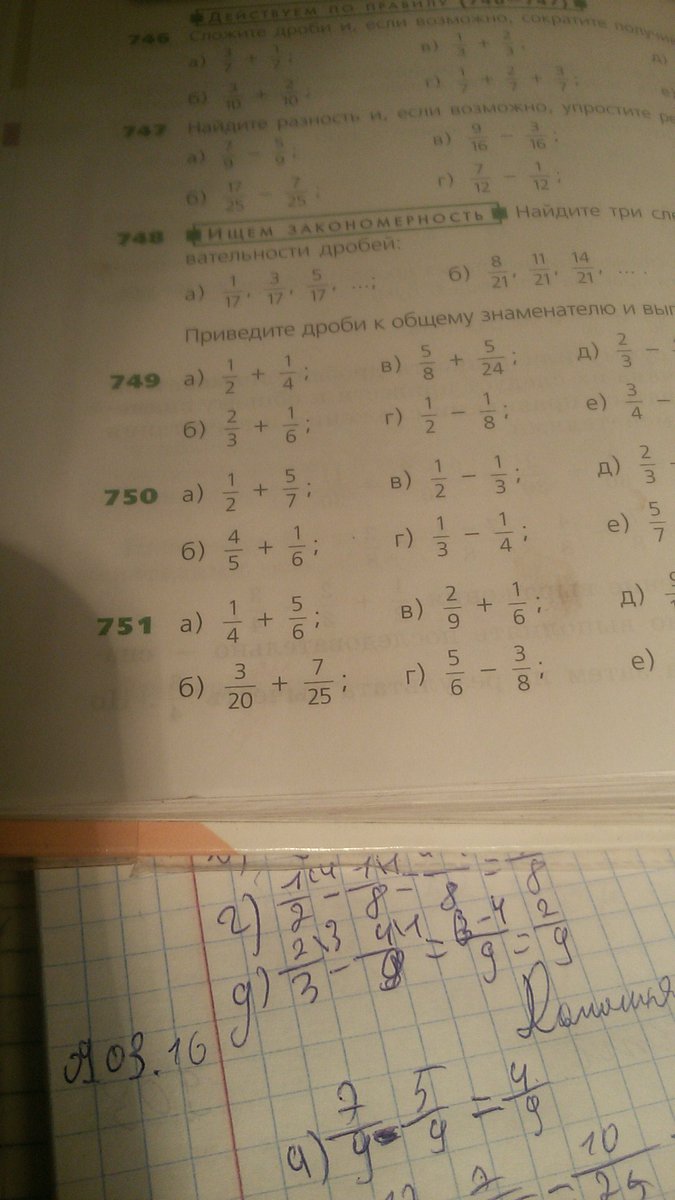 ДЕЙСТВУЕМ ПО ПРАВИЛУ (746–747)
746 Сложите дроби и, если возможно, сократите
а) 3/7 + 1/7; в) 1/3 + 2/3; д)
б) 3/10 + 2/10; г) 1/7 + 2/7 + 3/7;
747 Найдите разность и, если возможно, упростите
а) 7/9 − 5/9; в) 9/16 − 3/16;
б) 17/25 − 7/25; г) 7/12 − 1/12;
748 ИЩЕМ ЗАКОНОМЕРНОСТЬ Найдите три
вательности дробей:
а) 1/17, 3/17, 5/17, ...; б) 8/21, 11/21, 14/21, ... .
Приведите дроби к общему знаменателю и
749 а) 1/2 + 1/4; в) 5/8 + 5/24; д) 2/3 −
б) 2/3 + 1/6; г) 1/2 − 1/8; е) 3/4 −
750 а) 1/2 + 5/7; в) 1/2 − 1/3; д) 2/3 −
б) 4/5 + 1/6; г) 1/3 − 1/4; е) 5/7
751 а) 1/4 + 5/6; в) 2/9 + 1/6; д)
б) 3/20 + 7/25; г) 5/6 − 3/8; е)
г) 1\4/2 − 1\1/8 − /8 = /8
д) 2\3/3 − 4\1/9 = −4/9 = 2/9
03.16
а) 7/9 - 5/9 = 4/9
10